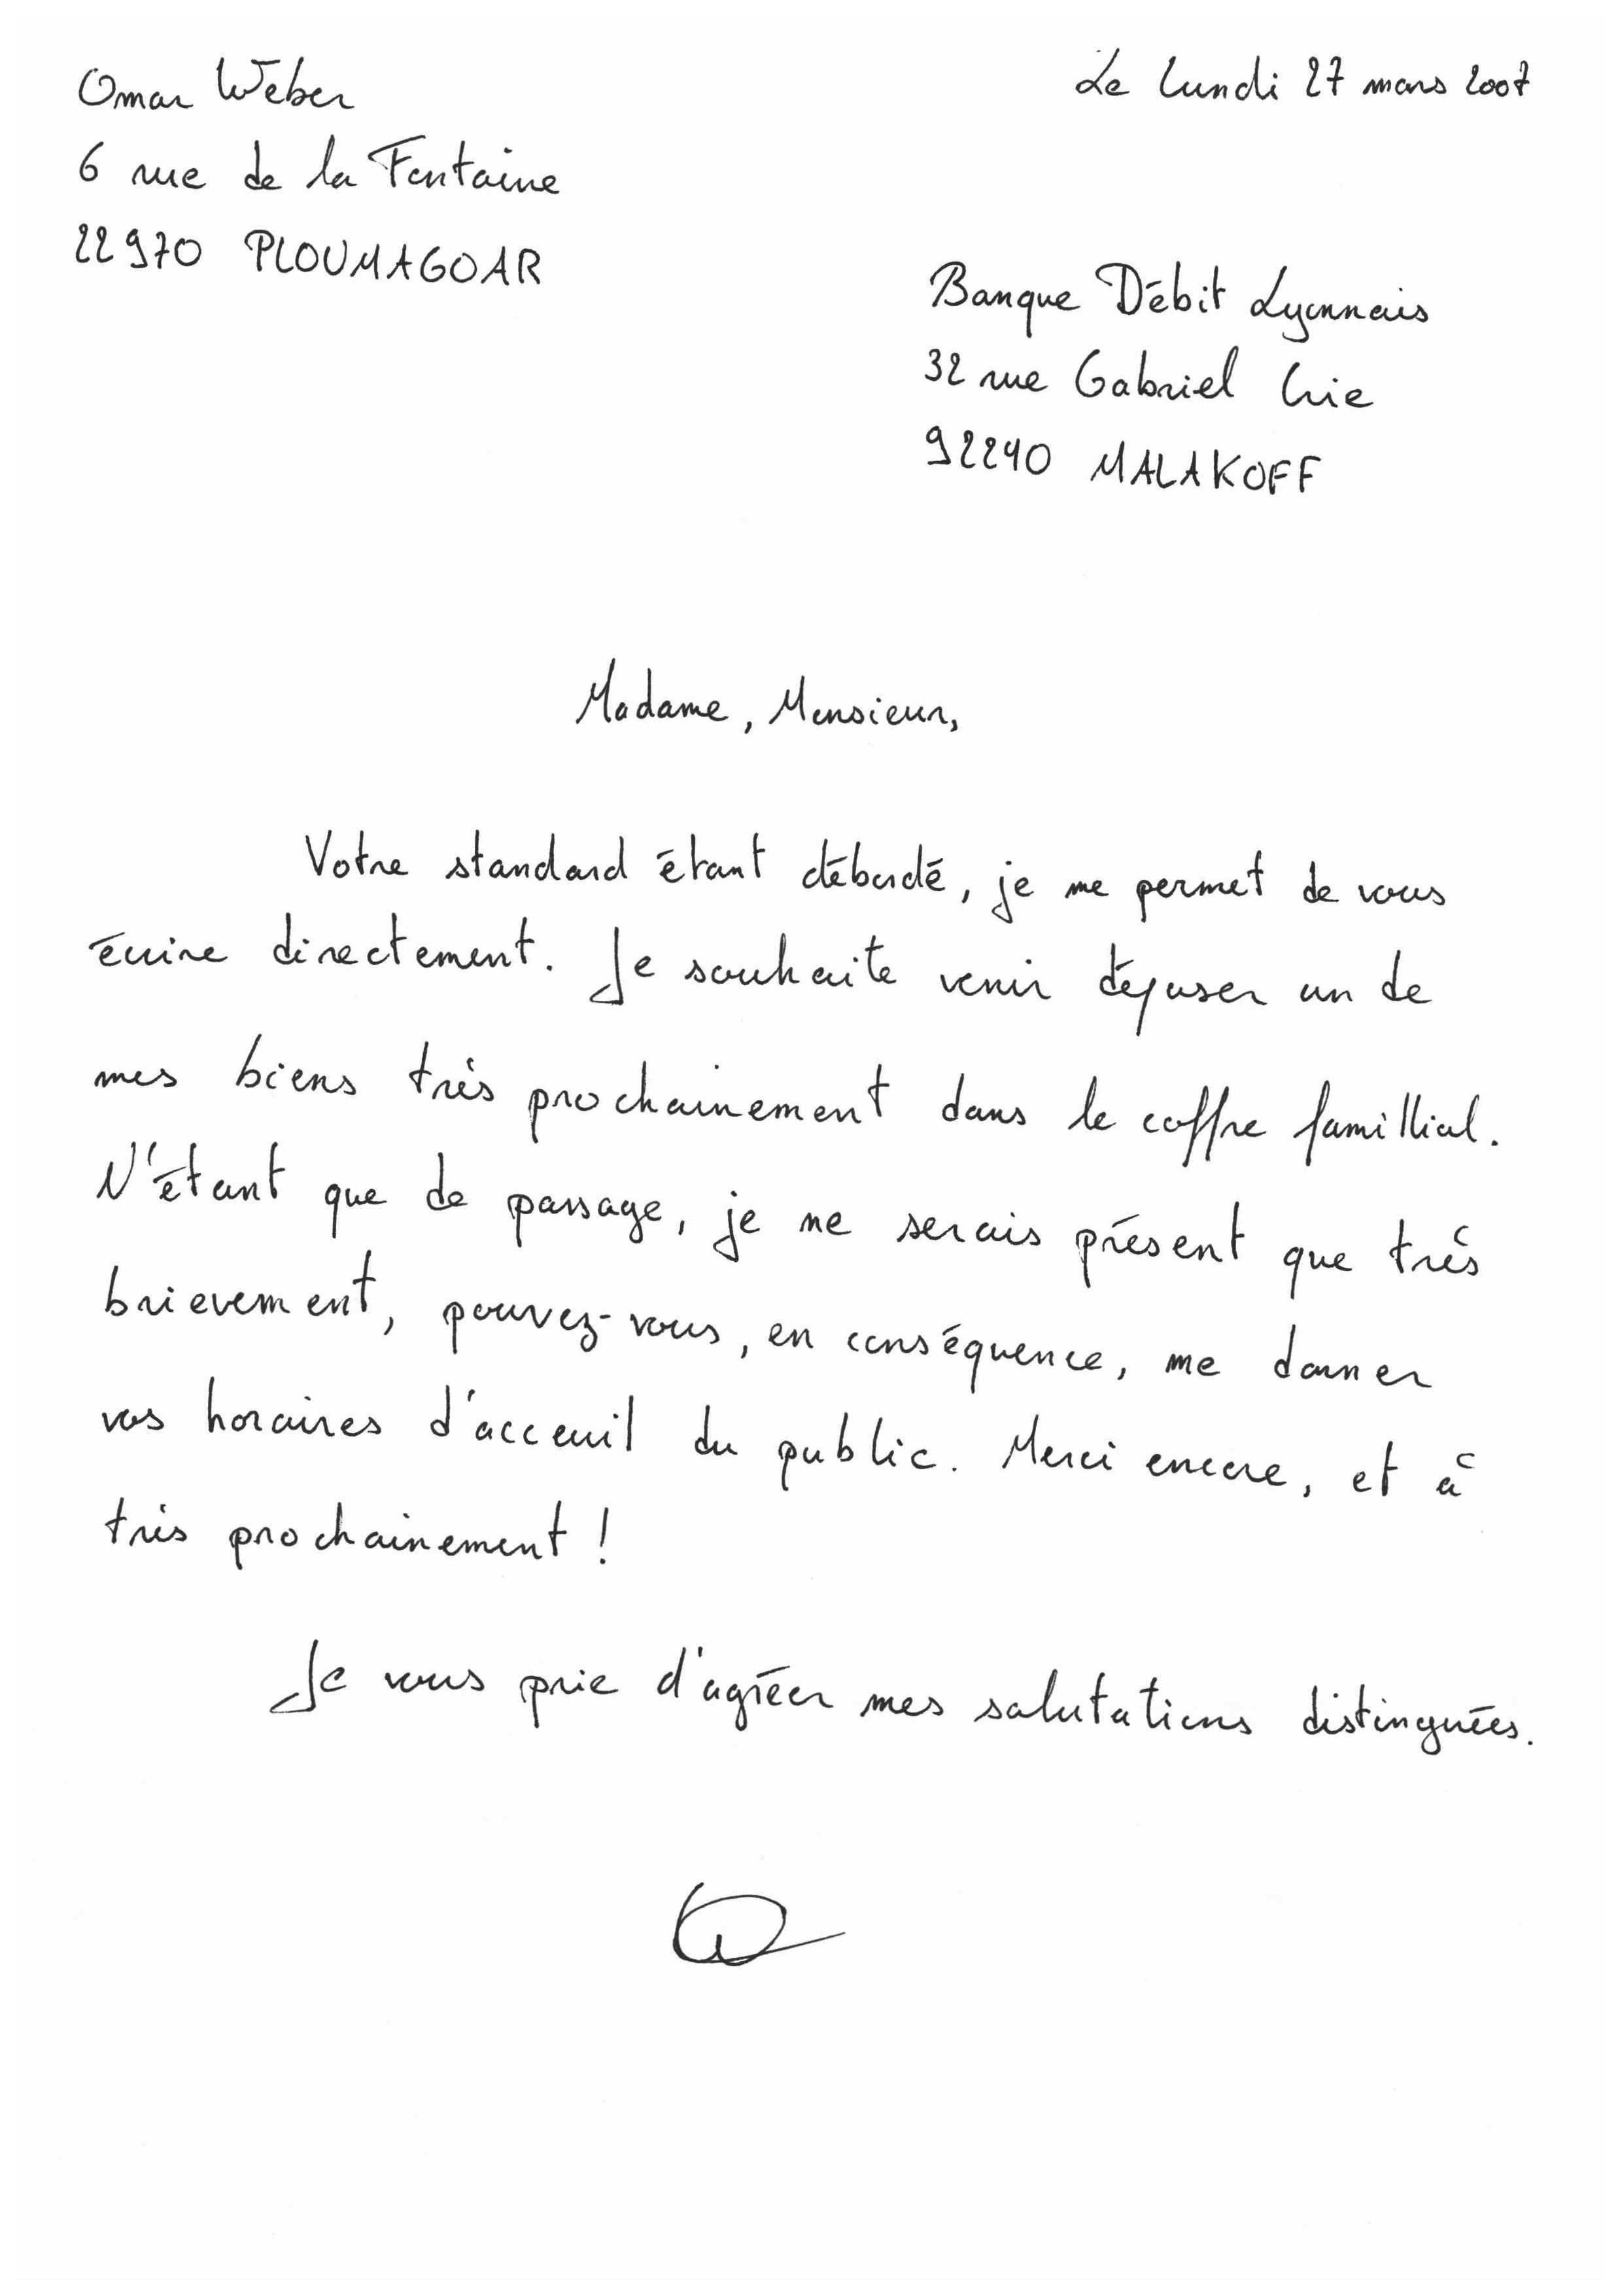 Omar Weber
Le lundi 27 mars 2007
6 rue de la Fontaine
22970 PLOUMAGOAR
Banque Débit Lyonnais
32 rue Gabriel Crie
92240 MALAKOFF
Madame, Monsieur,
Votre standard étant débordé, je me permet de vous
écrire directement. Je souhaite venir déposer un de
mes biens très prochainement dans le coffre famillial.
N'étant que de passage, je ne serais présent que très
brievement, pouvez-vous, en conséquence, me donner
vos horaires d'acceuil du public. Merci encore, et à
très prochainement !
Je vous prie d'agréer mes salutations distinguées.